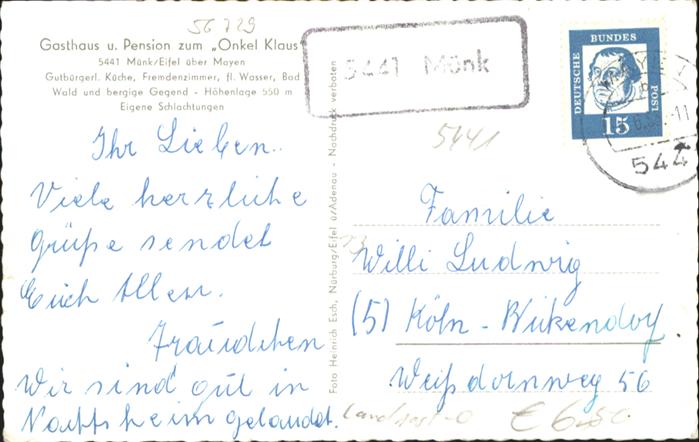 56729
Gasthaus u. Pension zum „Onkel Klaus“
5441 Münk/Eifel über Mayen
Gutbürgerl. Küche, Fremdenzimmer, fl. Wasser, Bad
Wald und bergige Gegend - Höhenlage 550 m
Eigene Schlachtungen
Ihr Lieben..
Viele herzliche
Grüße sendet
Euch Allen.
Traudchen
Wir sind gut in
Nachtsheim gelandet.
Foto Heinrich Esch, Nürburg/Eifel ü/Adenau - Nachdruck verboten
5441 Münk
5441
DEUTSCHE
BUNDES
POST
15
544
Familie
Willi Ludwig
(5) Köln - Bickendorf
Weißdornweg 56
Landpost-O € 6.50